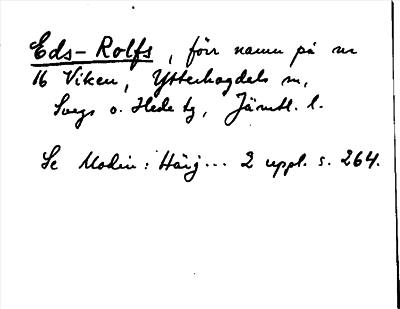 Eds-Rolfs, förr namn på nr
16 Viken, Ytterhogdals sn,
Svegs o. Hede tg, Jämtl. l.
Se Modin: Härj... 2 uppl. s. 264.